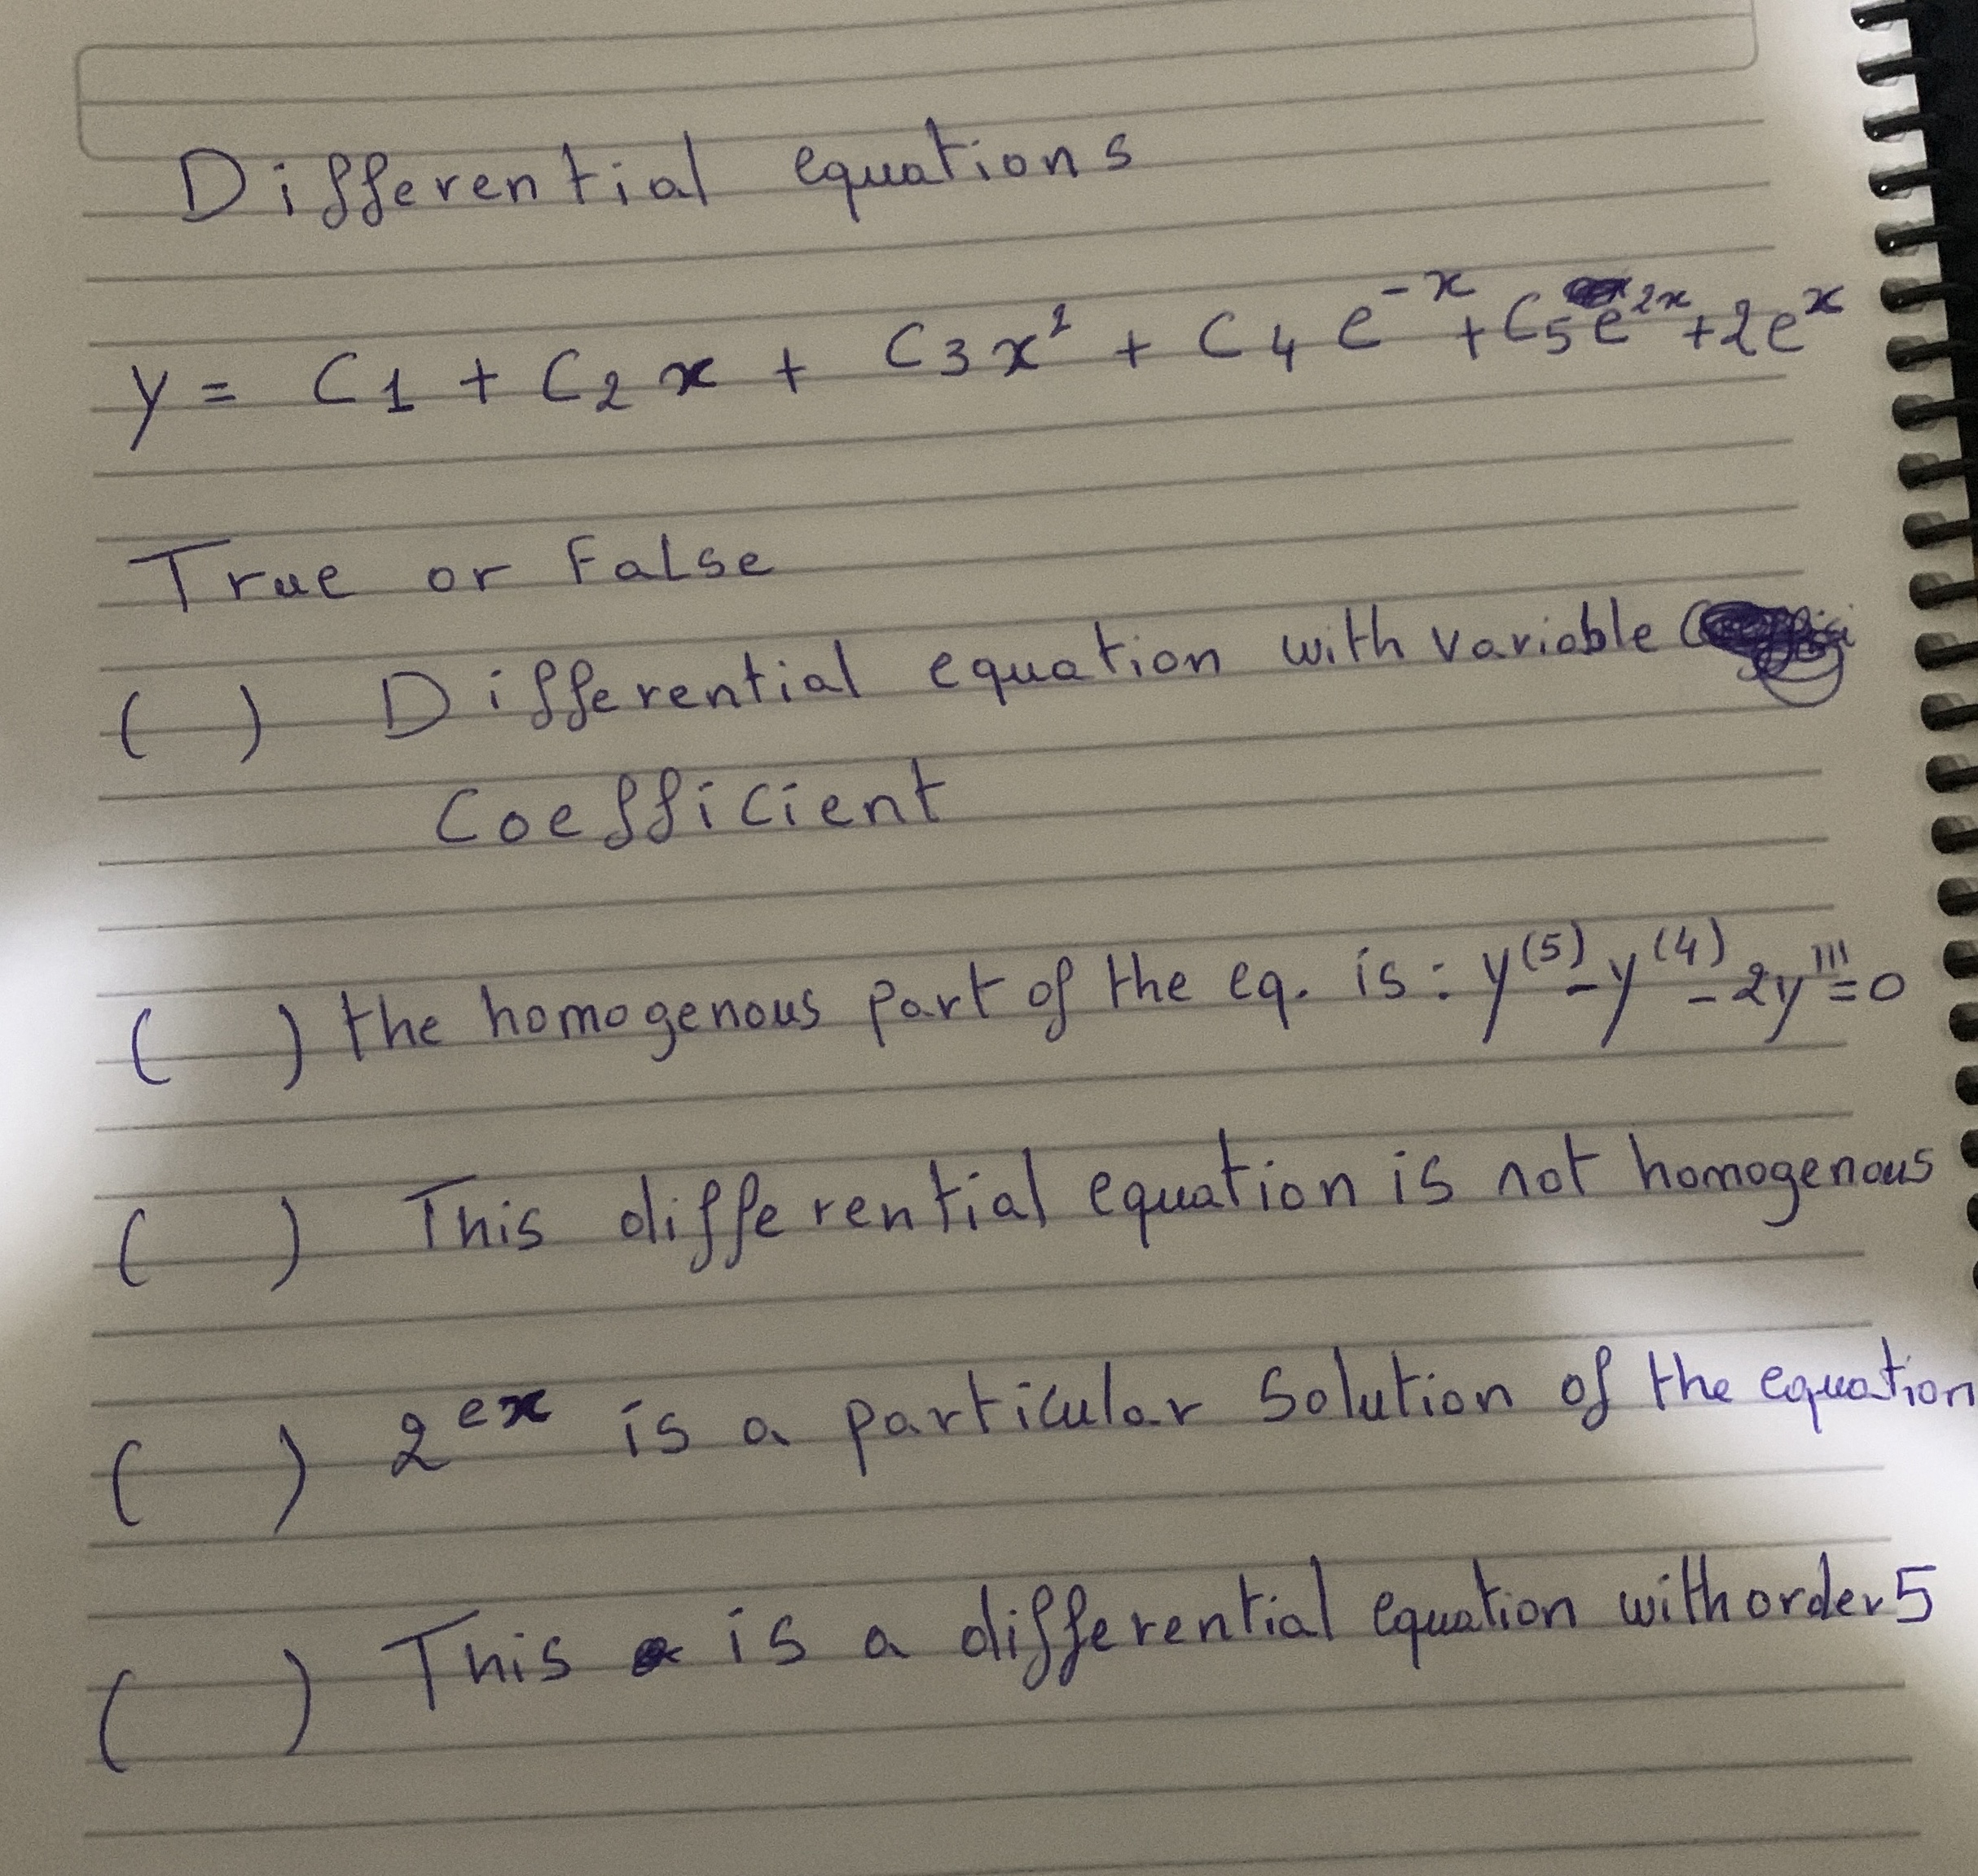 Differential equations
y = C1 + C2 x + C3x² + C4 e⁻ˣ + C5e²ˣ + 2eˣ
True or False
( ) Differential equation with variable
Coefficient
( ) the homogenous part of the eq. is : y⁽⁵⁾ - y⁽⁴⁾ - 2y''' = 0
( ) This differential equation is not homogenous
( ) 2ᵉˣ is a particular solution of the equation
( ) This is a differential equation with order 5